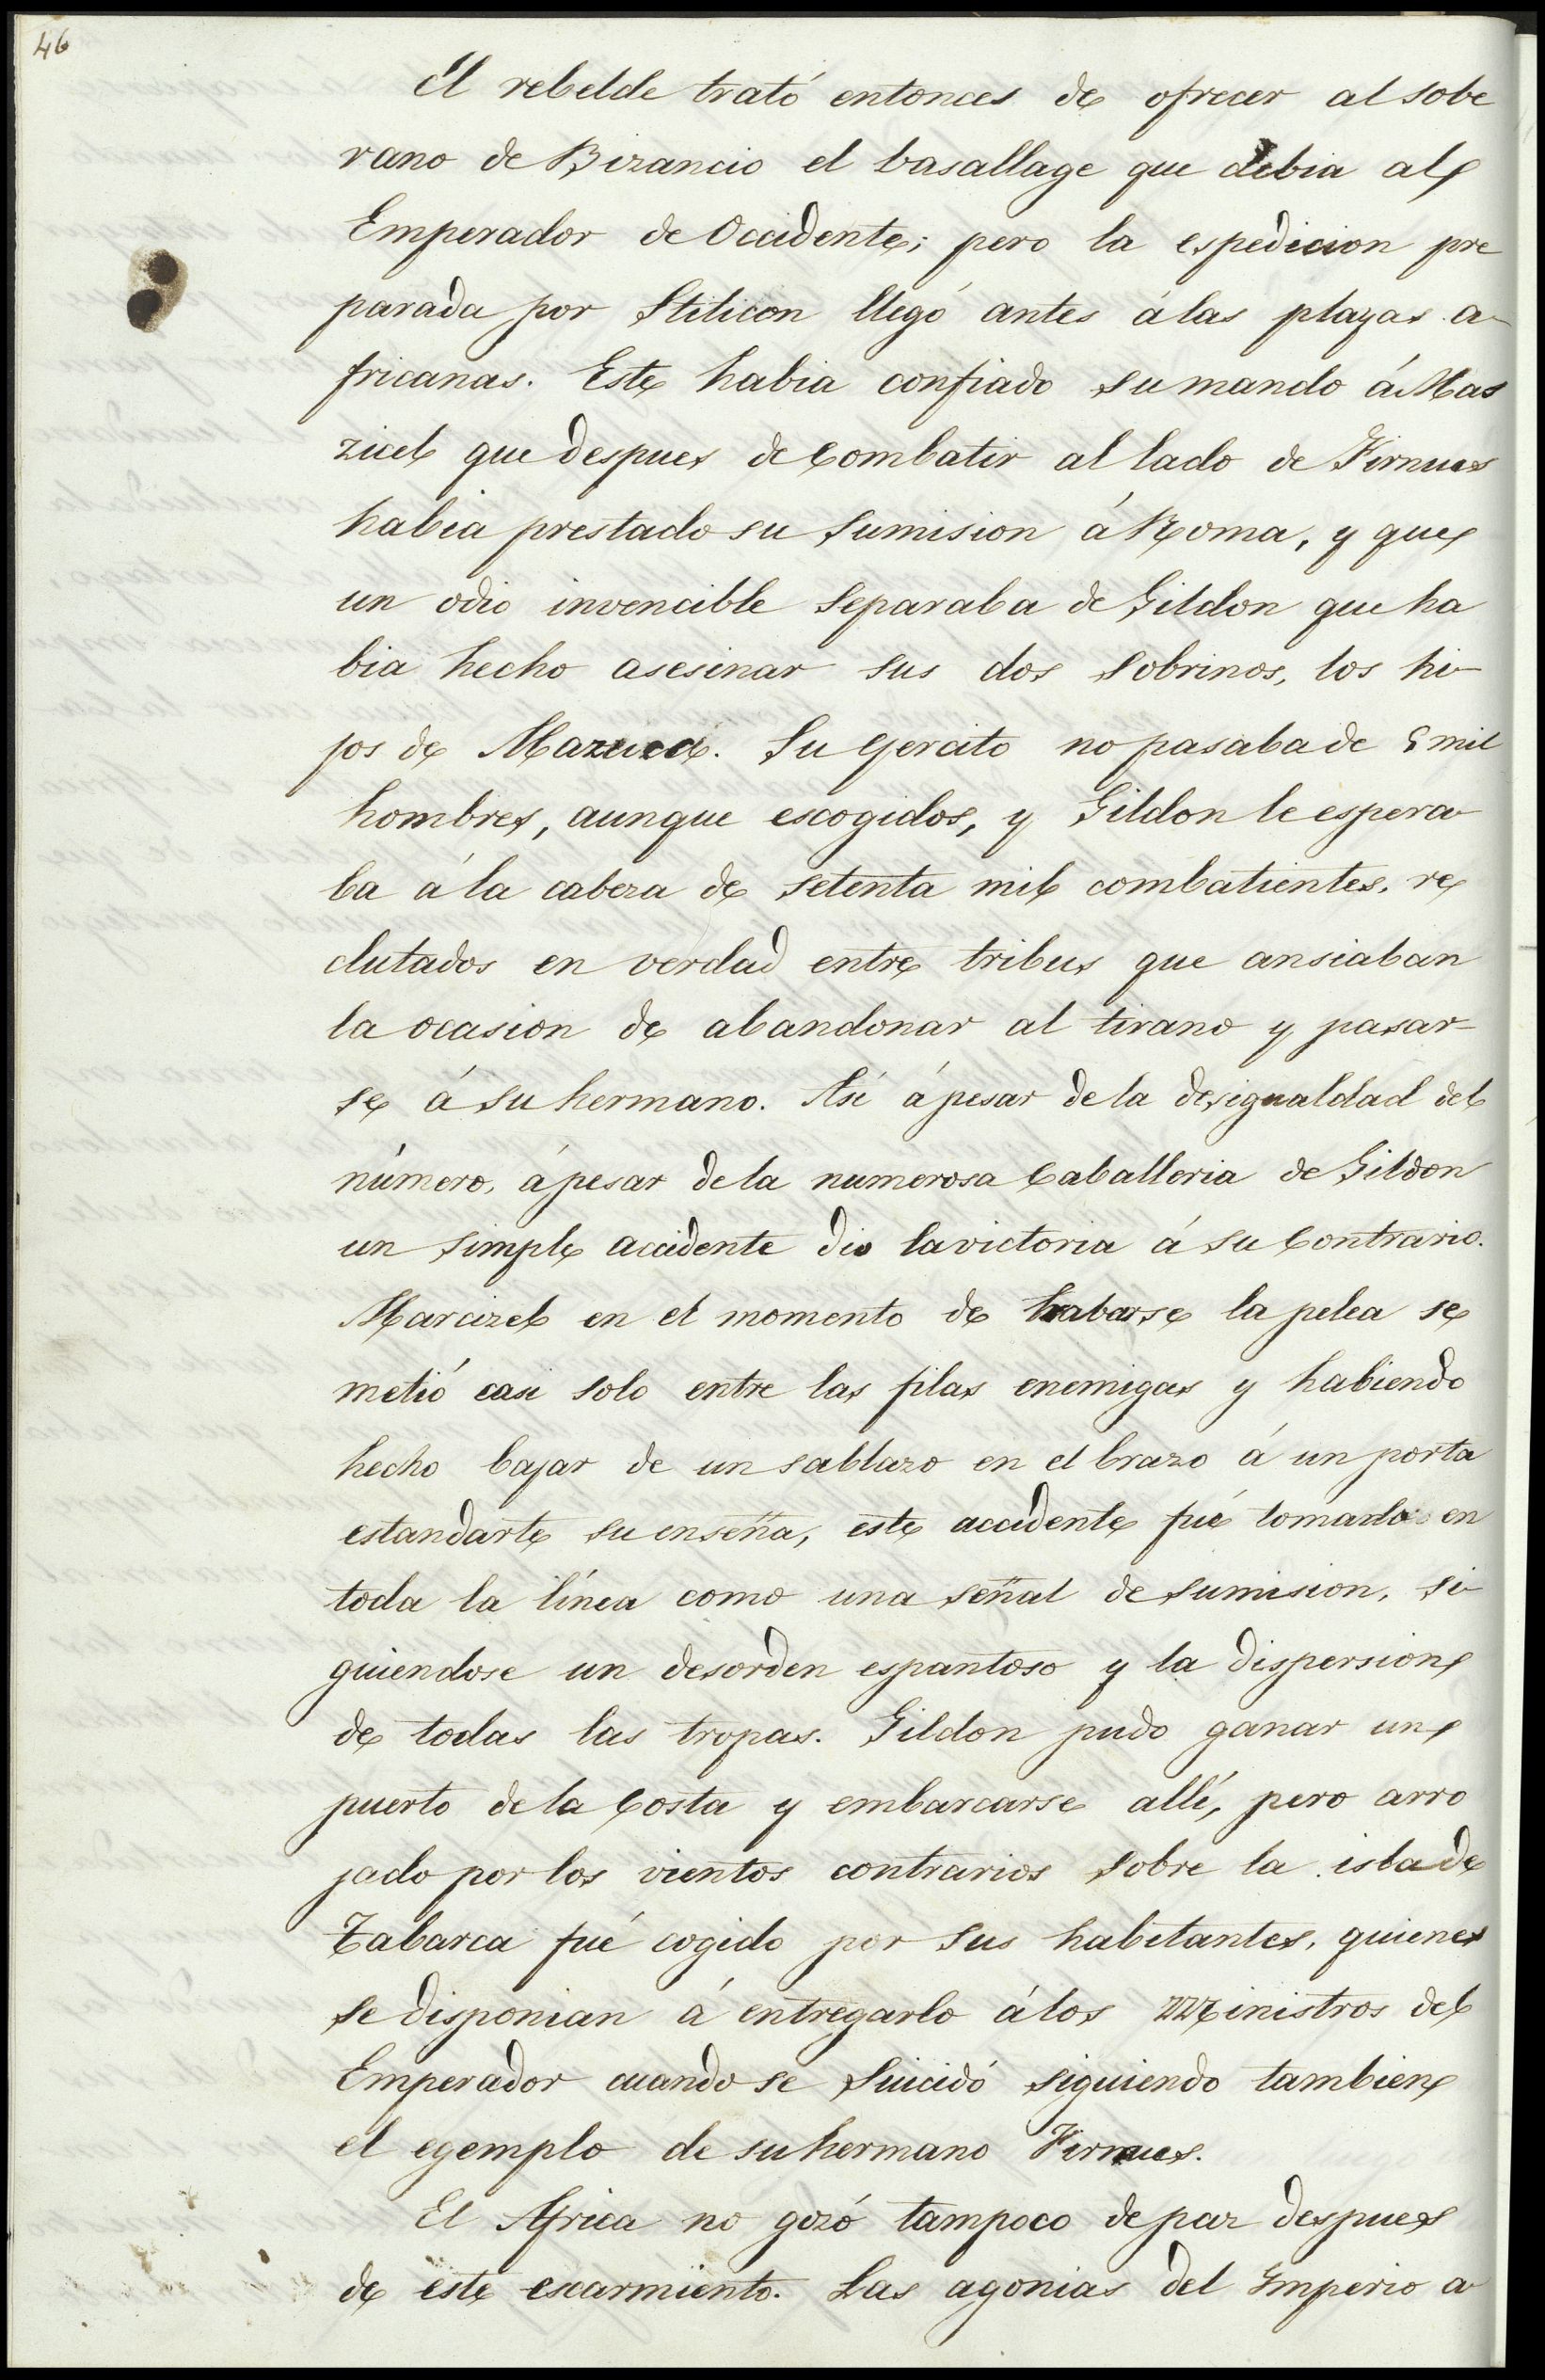 46
El rebelde trató entonces de ofrecer al sobe
rano de Bizancio el basallage que debia al
Emperador de Occidente; pero la espedicion pre
parada por Stilicon llegó antes á las playas a-
fricanas. Este habia confiado su mando á Mas
zicel que despues de combatir al lado de Firmus
habia prestado su sumision á Roma, y que
un odio invencible separaba de Gildon que ha
bia hecho asesinar sus dos sobrinos, los hi-
jos de . Su egercito no pasaba de 5 mil
hombres, aunque escogidos, y Gildon le espera-
ba á la cabeza de setenta mil combatientes, re
clutados en verdad entre tribus que ansiaban
la ocasion de abandonar al tirano y pasar-
se á su hermano. Asi á pesar de la desigualdad del
número, á pesar de la numerosa caballeria de Gildon
un simple accidente dio la victoria á su contrario.
Marcizel en el momento de trabarse la pelea se
metió casi solo entre las filas enemigas y habiendo
hecho bajar de un sablazo en el brazo á un porta
estandarte su enseña, este accidente fué tomado en
toda la línea como una señal de sumision, si-
guiendose un desorden espantoso y la dispersion
de todas las tropas. Gildon pudo ganar un
puerto de la costa y embarcarse allí, pero arro
jado por los vientos contrarios sobre la isla de
Tabarca fué cogido por sus habitantes, quienes
se disponian á entregarlo á los Ministros del
Emperador cuando se suicidó siguiendo tambien
el egemplo de su hermano Firmus.
El Africa no gozó tampoco de paz despues
de este escarmiento. Las agonias del Imperio a-